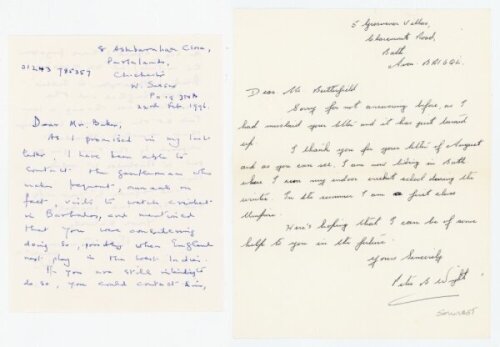 8 Ashburnham Close,
01243 785357
Chichester
W. Sussex
22nd Feb. 1996.
Dear Mr. Baker,
As I promised in my last
letter, I have been able to
contact the gentleman who
makes frequent, annual in
fact, visits to watch cricket
in Barbados, and mentioned
that you were considering
doing so, possibly when England
next play in the West Indies.
If you are still intending to
do so, you could contact him,
5 Grosvenor Villas,
Claremont Road,
Bath
Avon
Dear Mr Butterfield
Sorry for not answering before, as I
had mislaid your letter and it has just turned
up.
I thank you for your letter of August
and as you can see, I am now living in Bath
where I run my indoor cricket school during the
winter. In the summer I am a first class
Umpire.
Here's hoping that I can be of some
help to you in the future.
Yours Sincerely
Peter B Wight
Somerset